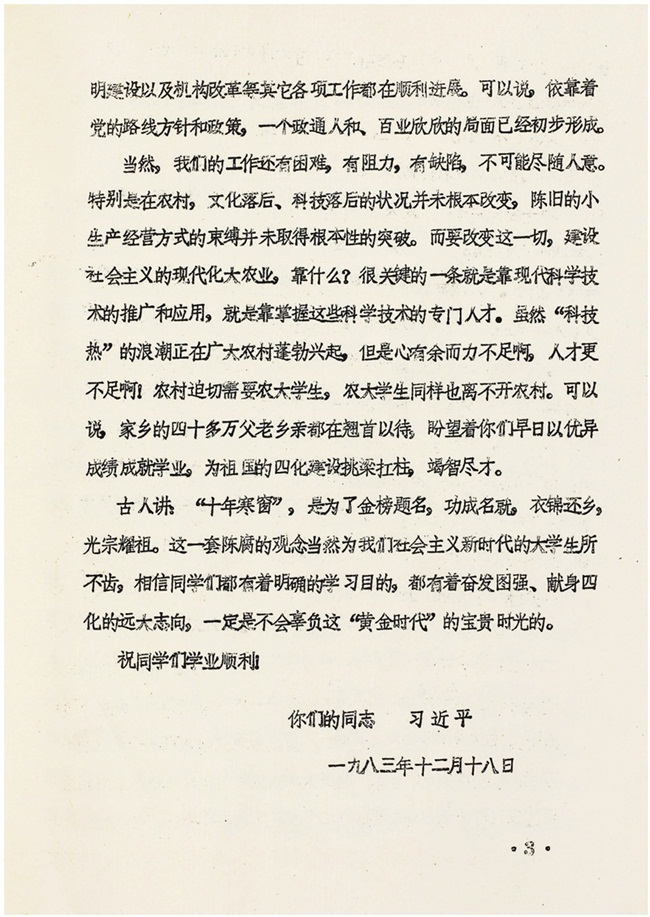 明建设以及机构改革等其它各项工作都在顺利进展。可以说，依靠着
党的路线方针和政策，一个政通人和、百业欣欣的局面已经初步形成。
当然，我们的工作还有困难，有阻力，有缺陷，不可能尽随人意。
特别是在农村，文化落后、科技落后的状况并未根本改变，陈旧的小
生产经营方式的束缚并未取得根本性的突破。而要改变这一切，建设
社会主义的现代化大农业，靠什么？很关键的一条就是靠现代科学技
术的推广和应用，就是靠掌握这些科学技术的专门人才。虽然“科技
热”的浪潮正在广大农村蓬勃兴起，但是心有余而力不足啊，人才更
不足啊！农村迫切需要农大学生，农大学生同样也离不开农村。可以
说，家乡的四十多万父老乡亲都在翘首以待，盼望着你们早日以优异
成绩成就学业，为祖国的四化建设挑梁扛柱，竭智尽才。
古人讲：“十年寒窗”，是为了金榜题名，功成名就，衣锦还乡，
光宗耀祖。这一套陈腐的观念当然为我们社会主义新时代的大学生所
不齿，相信同学们都有着明确的学习目的，都有着奋发图强、献身四
化的远大志向，一定是不会辜负这“黄金时代”的宝贵时光的。
祝同学们学业顺利！
你们的同志 习近平
一九八三年十二月十八日
·3·